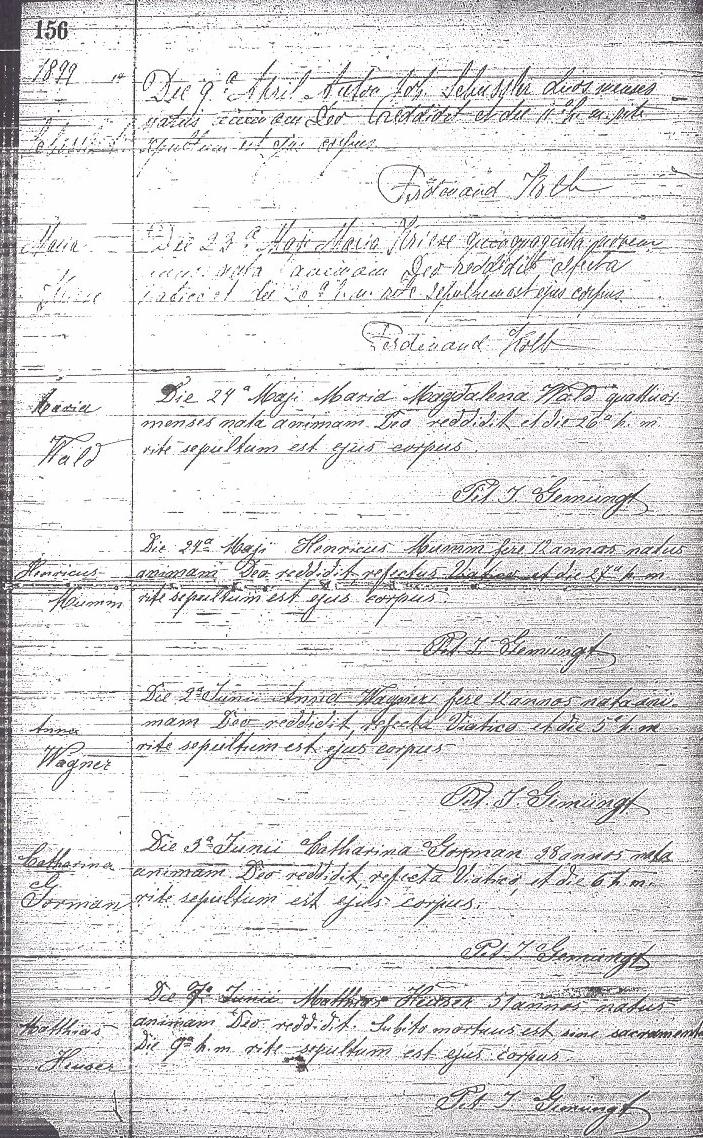 156
1899
Die 9ª April Anton Joh. Schussler duos menses
natus animam Deo reddidit et die 11ª h. m. rite
sepultum est ejus corpus
Ferdinand Kolb
Maria
Die 23ª Maji Maria Kriese quinquaginta novem
annos nata animam Deo reddidit refecta
viatico et die h. m. rite sepultum est ejus corpus
Ferdinand Kolb
Maria
Wald
Die 24ª Maji Maria Magdalena Wald quattuor
menses nata animam Deo reddidit et die 26ª h. m
rite sepultum est ejus corpus.
Pet. J. Gemüngt
Henricus
Mumm
Die 24ª Maji Henricus Mumm fere 12 annos natus
animam Deo reddidit refectus Viatico et die 27ª h. m
rite sepultum est ejus corpus
Pet J. Gemüngt
Anna
Wagner
Die 2ª Junii Anna Wagner fere 12 annos nata ani-
mam Deo reddidit, refecta Viatico et die 5ª h. m
rite sepultum est ejus corpus
Pet. J. Gemüngt
Catharina
Gorman
Die 3ª Junii Catharina Gorman 38 annos nata
animam Deo reddidit, refecta Viatico, et die 6 h. m.
rite sepultum est ejus corpus.
Pet J Gemüngt
Matthias
Heuser
Die 7ª Junii Matthias Heuser 51 annos natus
animam Deo reddidit. Subito mortuus est sine sacramento
Die 9ª h. m rite sepultum est ejus corpus
Pet J Gemüngt